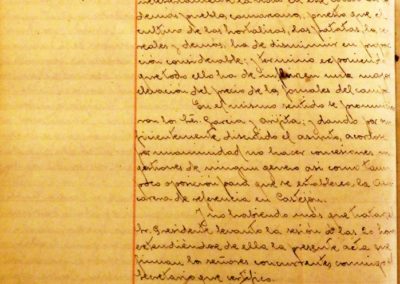 demas pueblos comarcanos, puesto que el
cultivo de las hortalizas, las patatas, ce-
reales y demas, ha de disminuir en propor-
cion considerable; y termino exponiendo
que todo ello ha de influir en una mayor
elevacion del precio de los jornales del campo.
En el mismo sentido se pronuncia-
ron los Sres. Garcia y ; y dando por su-
ficientemente discutido el asunto, acordose
por unanimidad no hacer concesiones ni
de ningun genero asi como tam-
poco oposicion para que se establezca la Azu-
carera de referencia en Castejon.
Y no habiendo mas que tratar el
Sr. Presidente levanto la sesion a las 20 horas
extendiendose de ella la presente acta que
firman los señores concurrentes conmigo el
Secretario que certifico.